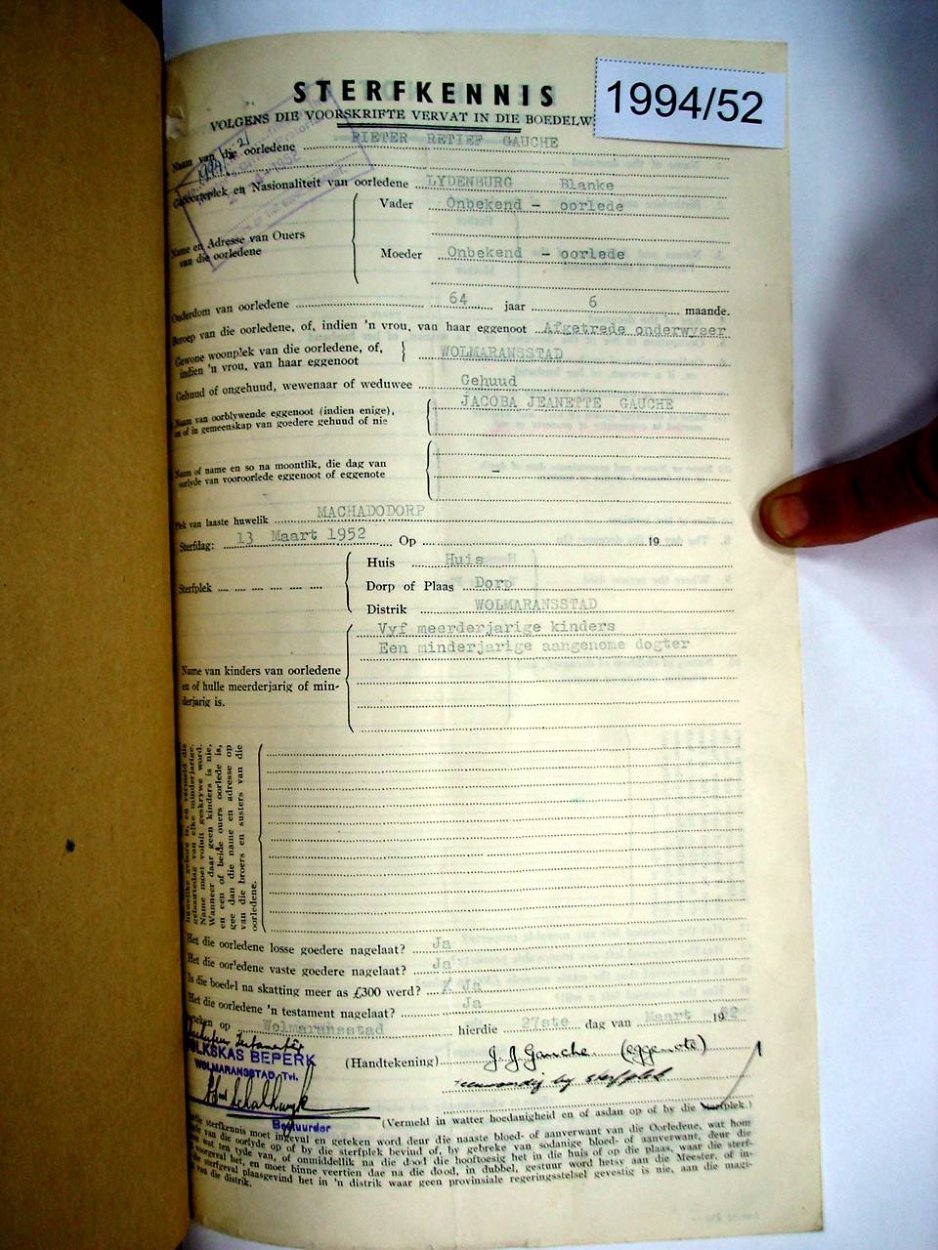 1994/52
STERFKENNIS
VOLGENS DIE VOORSKRIFTE VERVAT IN DIE BOEDELW
Naam van die oorledene PIETER RETIEF GAUCHE
Geboorteplek en Nasionaliteit van oorledene LYDENBURG Blanke
Name en Adresse van Ouers van die oorledene
Vader Onbekend - oorlede
Moeder Onbekend - oorlede
Ouderdom van oorledene 64 jaar 6 maande.
Beroep van die oorledene, of, indien 'n vrou, van haar eggenoot Afgetrede onderwyser
Gewone woonplek van die oorledene, of,
indien 'n vrou, van haar eggenoot
WOLMARANSSTAD
Gehuud of ongehuud, wewenaar of weduwee Gehuud
Naam van oorblywende eggenoot (indien enige),
en of in gemeenskap van goedere gehuud of nie
JACOBA JEANETTE GAUCHE
Naam of name en so na moontlik, die dag van
oorlyde van vooroorlede eggenoot of eggenote
-
Plek van laaste huwelik MACHADODORP
Sterfdag: 13 Maart 1952 Op 19
Sterfplek
Huis Huis
Dorp of Plaas Dorp
Distrik WOLMARANSSTAD
Name van kinders van oorledene
en of hulle meerderjarig of min-
derjarig is.
Vyf meerderjarige kinders
Een minderjarige aangenome dogter
geboortedag van elke minderjarige.
Name moet voluit geskrywe word.
Wanneer daar geen kinders is nie,
en een of beide ouers oorlede is,
gee dan die name en adresse op
van die broers en susters van die
oorledene.
Het die oorledene losse goedere nagelaat? Ja
Het die oorledene vaste goedere nagelaat? Ja
Is die boedel na skatting meer as £300 werd? X Ja
Het die oorledene 'n testament nagelaat? Ja
Geteken op Wolmaransstad hierdie 27ste dag van Maart 19 52
VOLKSKAS BEPERK
WOLMARANSSTAD, Tvl.
Bestuurder
(Handtekening) J. J. Gauche (eggenote)
teenwoordig by sterfplek
(Vermeld in watter hoedanigheid en of asdan op of by die sterfplek.)
sterfkennis moet ingevul en geteken word deur die naaste bloed- of aanverwant van die Oorledene, wat hom
van die oorlyde op of by die sterfplek bevind of, by gebreke van sodanige bloed- of aanverwant, deur die
wat ten tyde van, of onmiddellik na die dood die hooftoesig het in die huis of op die plaas, waar die sterf-
voorgeval het, en moet binne veertien dae na die dood, in dubbel, gestuur word hetsy aan die Meester, of in-
die sterfgeval plaasgevind het in 'n distrik waar geen provinsiale regeringsstelsel gevestig is nie, aan die magi-
van die distrik.